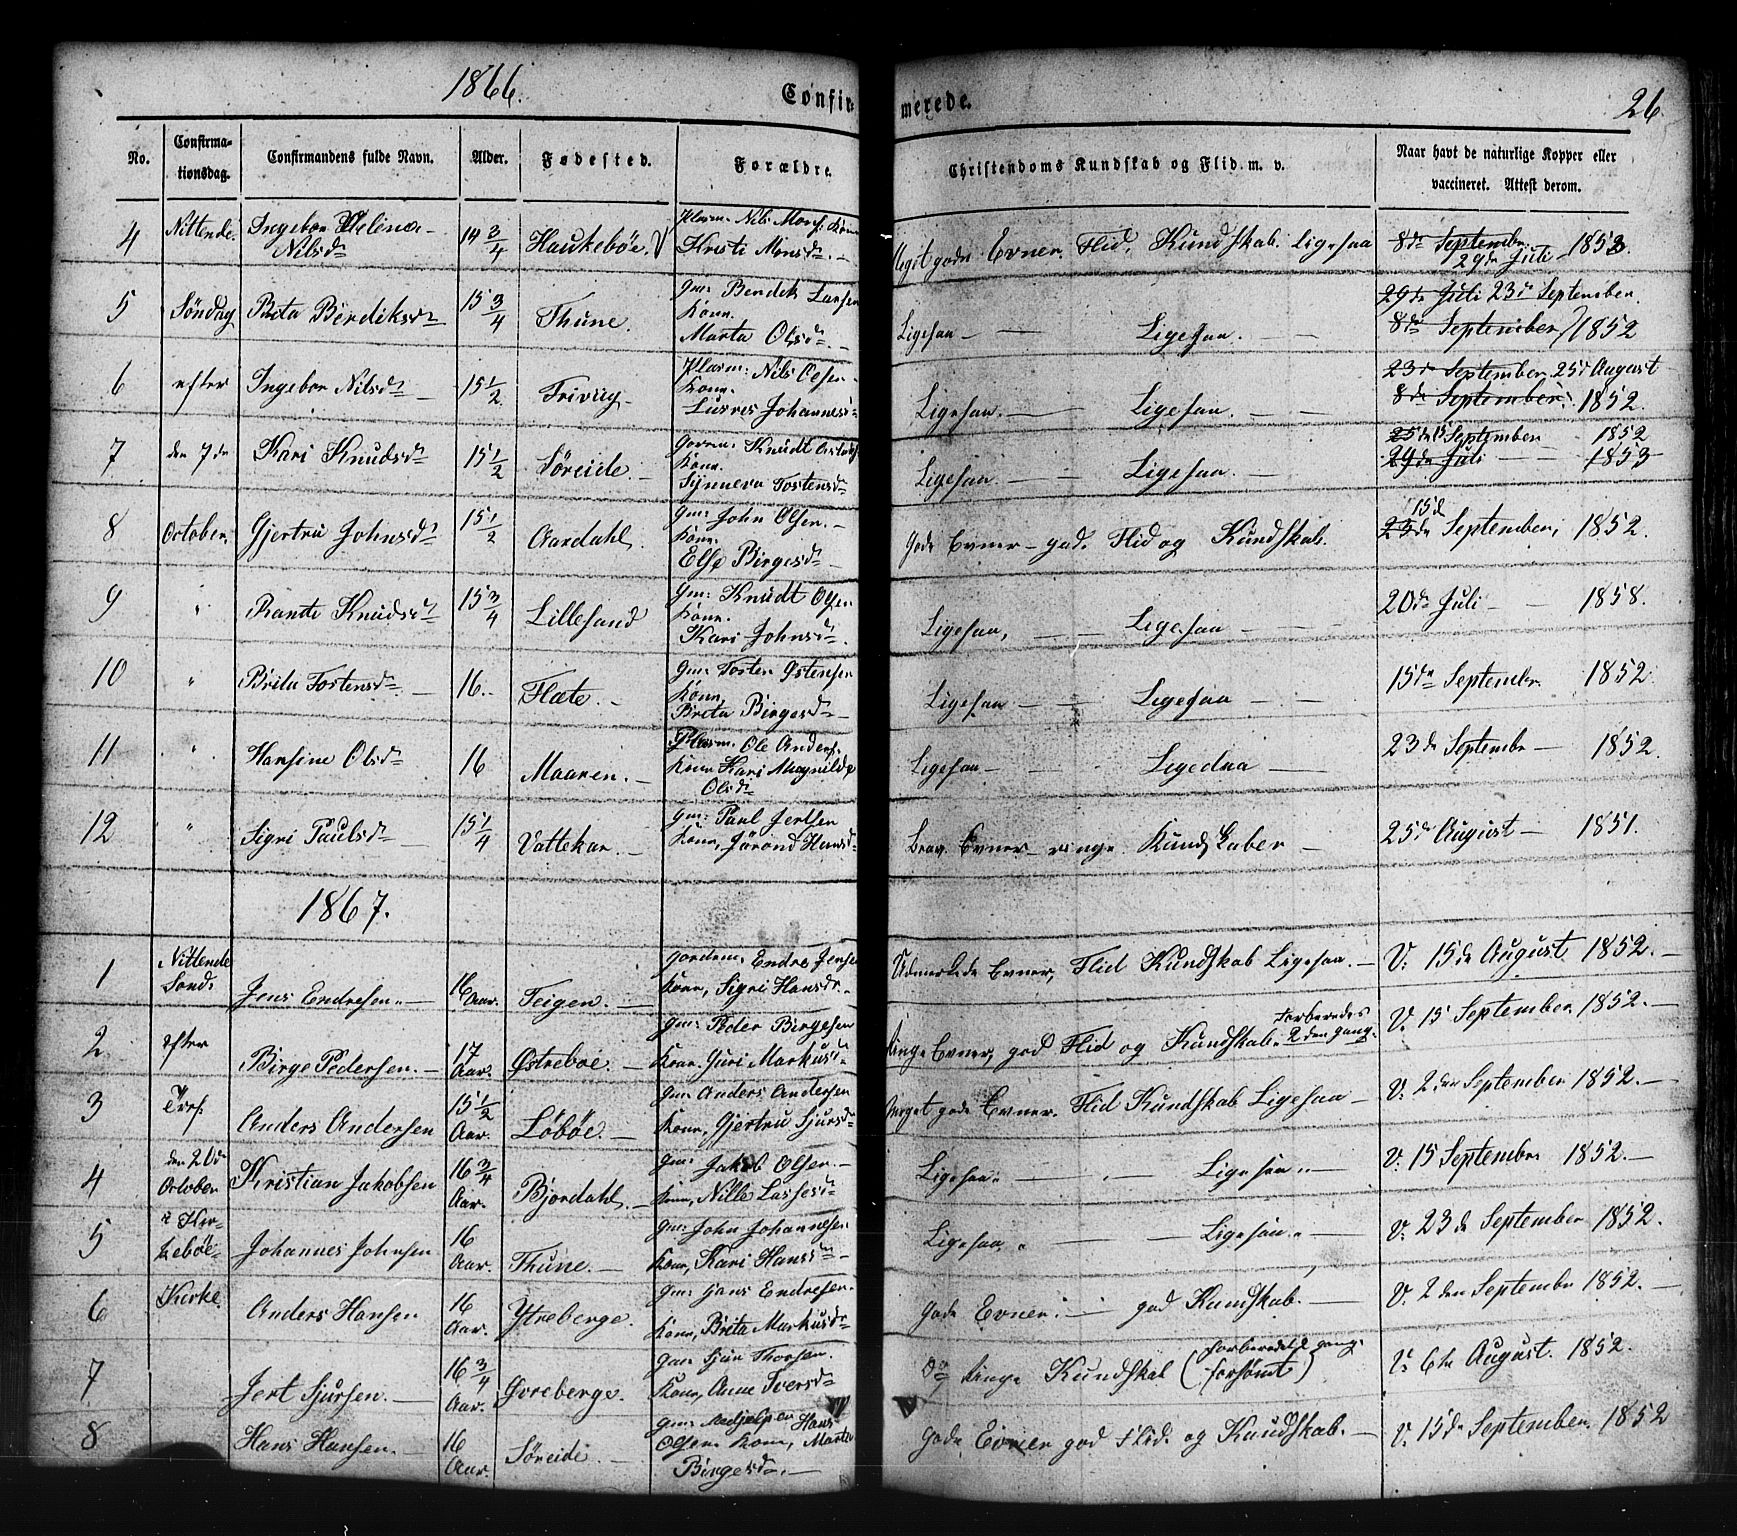 1866.
Confir-
merede.
26
No.
Confirma-
tionsdag.
Confirmandens fulde Navn.
Alder.
Fødested.
Forældre.
Christendoms Kundskab og Flid. m. v.
Naar havt de naturlige Kopper eller
vaccineret. Attest derom.
4 Nittende Ingebor Helene Nilsd 14 3/4 Haukebøe. Nils Kristi Monsd. Meget gode Evner, Flid, Kundskab ligesaa 8de Septembr. 29de Juli 1852.
5 Søndag Brita Bendiksd 15 3/4 Thune. Gm: Bendik Larsen Kone. Marta Olsd. Ligesaa Ligesaa. 29de Juli 23de September. 8de September 1852
6 efter Ingebor Nilsd 15 1/2 Friviig Nils Olsen Kone. Johannesd Ligesaa. Ligesaa. 23de September 25de August 8de September. 1852.
7 den 7de Kari Knudsd 15 1/2 Søreide. Knudt Kone. Synneva Tostensd Ligesaa Ligesaa. 25de 15 September 1852 29de Juli 1853
8 October. Gjertru Johnsd 15 1/2 Aardahl. Gm: John Olsen. Kone. Else Birgesd Gode Evner god Flid og Kundskab. 15d 23de September, 1852.
9 " Rande Knudsd 15 3/4 Lillesand Gm: Knudt Olsen Kone. Kari Johnsd. Ligesaa, Ligesaa 20de Juli 1858.
10 " Brita Tostensd. 16. Flæte. Gm: Tosten Østensen Kone, Brita Birgesd Ligesaa Ligesaa 15de Septembr. 1852.
11 " Hansine Olsd 16 Maaren. Ole Anders. Kone Kari Magnilde Olsd Ligesaa Ligedaa 23de Septembr 1852
12 " Sigri Paulsd 15 1/4 Vattekar. Gm: Paul Jertsen Kone, Jørond Hansd Brav. Evner ringe Kundskaber 25de August 1851.
1867.
1 Nittende Sønd. Jens Endresen. 16 Aar. Teigen. Endre Jensen Kone, Sigri Hansd. Udmerkede Evner, Flid Kundskab Ligesaa. V. 15de August 1852.
2 efter Birge Pedersen. 17 Aar. Østrebøe. Gm: Peder Birgesen Kone, Guri Markusd Ringe Evner, god Flid og Kundskab. Forberedes 2den gang. V. 15 September 1852.
3 Tref. Anders Andersen 15 1/2 Aar. Løbøe. Gm: Anders Andersen Kone, Gjertru Sjursd Meget gode Evner. Flid Kundskab Ligesaa V. 2den September 1852.
4 den 20de October Kristian Jakobsen 16 3/4 Aar. Bjordahl. Gm: Jakob Olsen Kone, Nille Lassesd Ligesaa. Ligesaa. V. 15 September 1852.
5 i Kir- kebøe- Johannes Johnsen 16 Aar. Thune. Gm: John Johannesen Kone, Kari Hansd Ligesaa. Ligesaa. V. 23de September 1852.
6 Kirke Anders Hansen 16 Aar. Ytreberge. Gm: Hans Endresen. Kone, Brita Markusd Gode Evner. god Kundskab. V. 2den Septembr 1852.
7 Jert Sjursen. 16 3/4 Aar. Øvreberge. Gm: Sjur Thorsen. Kone, Anne Iversd Ringe Kundskab (forberedeld gang forsømt) V. 6te August. 1852.
8 Hans Hansen. 16 Aar. Søreide. Gm: Medhjelper Hans Olsen Kone, Marta Birgesd. Gode Evner god Flid og Kundskab. V. 15de September. 1852